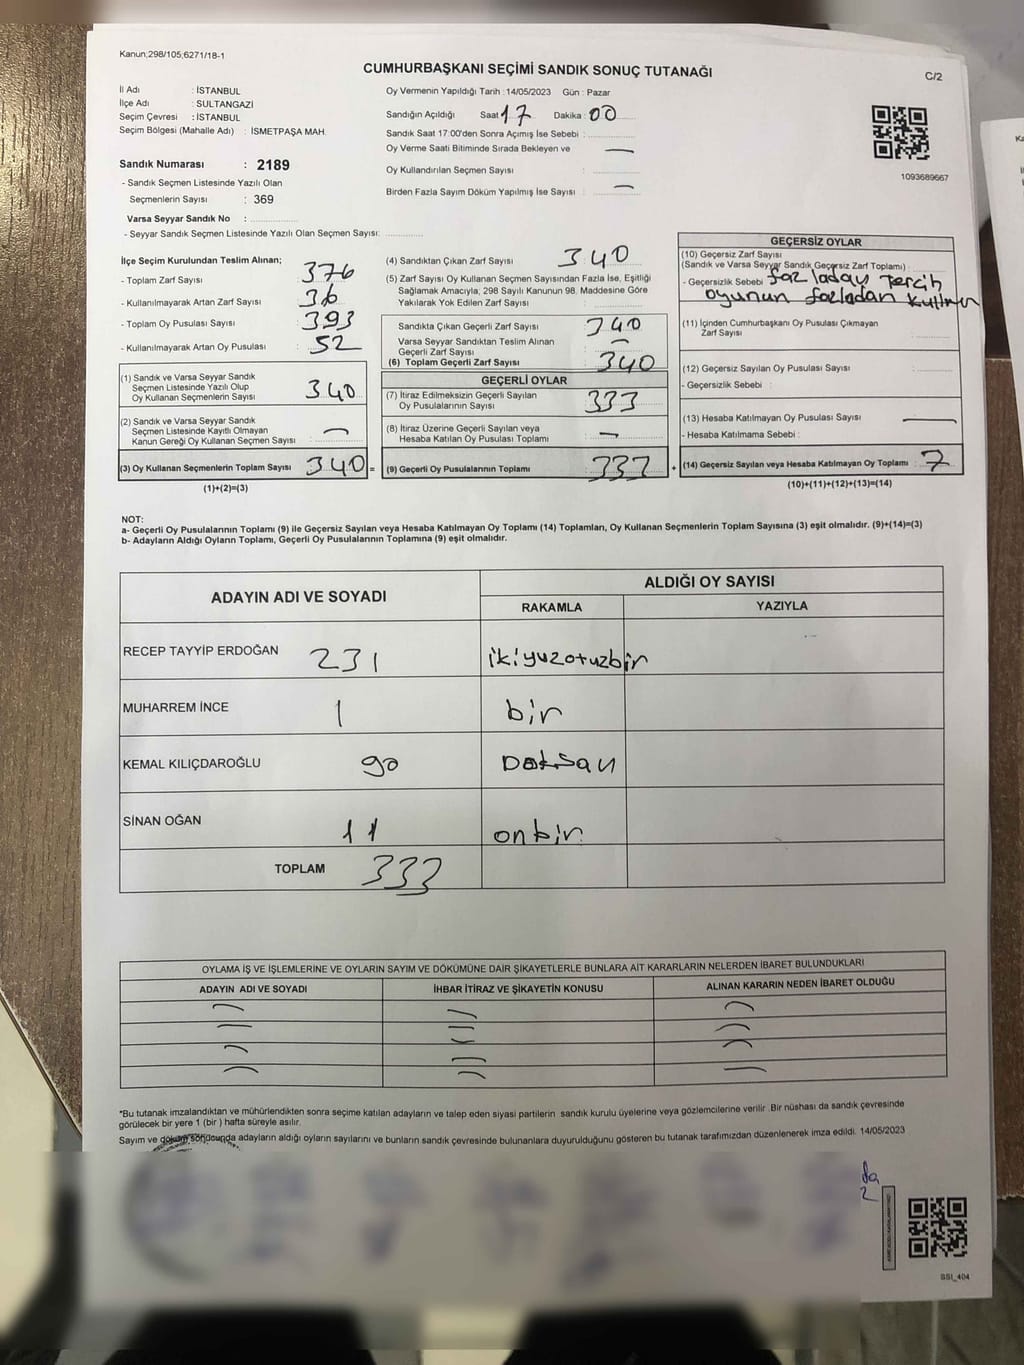 Kanun;298/105;6271/18-1
CUMHURBAŞKANI SEÇİMİ SANDIK SONUÇ TUTANAĞI
C/2
İl Adı : İSTANBUL
İlçe Adı : SULTANGAZİ
Seçim Çevresi : İSTANBUL
Seçim Bölgesi (Mahalle Adı) : İSMETPAŞA MAH.
Sandık Numarası : 2189
- Sandık Seçmen Listesinde Yazılı Olan
Seçmenlerin Sayısı : 369
Varsa Seyyar Sandık No :
- Seyyar Sandık Seçmen Listesinde Yazılı Olan Seçmen Sayısı:
Oy Vermenin Yapıldığı Tarih : 14/05/2023 Gün : Pazar
Sandığın Açıldığı Saat: 17 Dakika : 00
Sandık Saat 17:00'den Sonra Açımış İse Sebebi :
Oy Verme Saati Bitiminde Sırada Bekleyen ve —
Oy Kullandırılan Seçmen Sayısı :
Birden Fazla Sayım Döküm Yapılmış İse Sayısı : —
1093689667
İlçe Seçim Kurulundan Teslim Alınan;
- Toplam Zarf Sayısı : 376
- Kullanılmayarak Artan Zarf Sayısı : 36
- Toplam Oy Pusulası Sayısı : 393
- Kullanılmayarak Artan Oy Pusulası : 52
(1) Sandık ve Varsa Seyyar Sandık
Seçmen Listesinde Yazılı Olup
Oy Kullanan Seçmenlerin Sayısı : 340
(2) Sandık ve Varsa Seyyar Sandık
Seçmen Listesinde Kayıtlı Olmayan
Kanun Gereği Oy Kullanan Seçmen Sayısı : —
(3) Oy Kullanan Seçmenlerin Toplam Sayısı : 340 =
(1)+(2)=(3)
(4) Sandıktan Çıkan Zarf Sayısı : 340
(5) Zarf Sayısı Oy Kullanan Seçmen Sayısından Fazla İse, Eşitliği
Sağlamak Amacıyla; 298 Sayılı Kanunun 98. Maddesine Göre
Yakılarak Yok Edilen Zarf Sayısı :
Sandıkta Çıkan Geçerli Zarf Sayısı : 340
Varsa Seyyar Sandıktan Teslim Alınan
Geçerli Zarf Sayısı : —
(6) Toplam Geçerli Zarf Sayısı : 340
GEÇERLİ OYLAR
(7) İtiraz Edilmeksizin Geçerli Sayılan
Oy Pusulalarının Sayısı : 333
(8) İtiraz Üzerine Geçerli Sayılan veya
Hesaba Katılan Oy Pusulası Toplamı : —
(9) Geçerli Oy Pusulalarının Toplamı : 333 +
GEÇERSİZ OYLAR
(10) Geçersiz Zarf Sayısı
(Sandık ve Varsa Seyyar Sandık Geçersiz Zarf Toplamı) :
- Geçersizlik Sebebi : fazladan tercih
oyunun fazladan
(11) İçinden Cumhurbaşkanı Oy Pusulası Çıkmayan
Zarf Sayısı :
(12) Geçersiz Sayılan Oy Pusulası Sayısı :
- Geçersizlik Sebebi :
(13) Hesaba Katılmayan Oy Pusulası Sayısı : —
- Hesaba Katılmama Sebebi :
(14) Geçersiz Sayılan veya Hesaba Katılmayan Oy Toplamı : 7
(10)+(11)+(12)+(13)=(14)
NOT:
a- Geçerli Oy Pusulalarının Toplamı (9) ile Geçersiz Sayılan veya Hesaba Katılmayan Oy Toplamı (14) Toplamları, Oy Kullanan Seçmenlerin Toplam Sayısına (3) eşit olmalıdır. (9)+(14)=(3)
b- Adayların Aldığı Oyların Toplamı, Geçerli Oy Pusulalarının Toplamına (9) eşit olmalıdır.
ADAYIN ADI VE SOYADI
ALDIĞI OY SAYISI
RAKAMLA YAZIYLA
RECEP TAYYİP ERDOĞAN 231 ikiyuzotuzbir
MUHARREM İNCE 1 bir
KEMAL KILIÇDAROĞLU 90 Doksan
SİNAN OĞAN 11 onbir
TOPLAM 333
OYLAMA İŞ VE İŞLEMLERİNE VE OYLARIN SAYIM VE DÖKÜMÜNE DAİR ŞİKAYETLERLE BUNLARA AİT KARARLARIN NELERDEN İBARET BULUNDUKLARI
ADAYIN ADI VE SOYADI İHBAR İTİRAZ VE ŞİKAYETİN KONUSU ALINAN KARARIN NEDEN İBARET OLDUĞU
*Bu tutanak imzalandıktan ve mühürlendikten sonra seçime katılan adayların ve talep eden siyasi partilerin sandık kurulu üyelerine veya gözlemcilerine verilir .Bir nüshası da sandık çevresinde
görülecek bir yere 1 (bir ) hafta süreyle asılır.
Sayım ve döküm sonucunda adayların aldığı oyların sayılarını ve bunların sandık çevresinde bulunanlara duyurulduğunu gösteren bu tutanak tarafımızdan düzenlenerek imza edildi. 14/05/2023
SSI_404